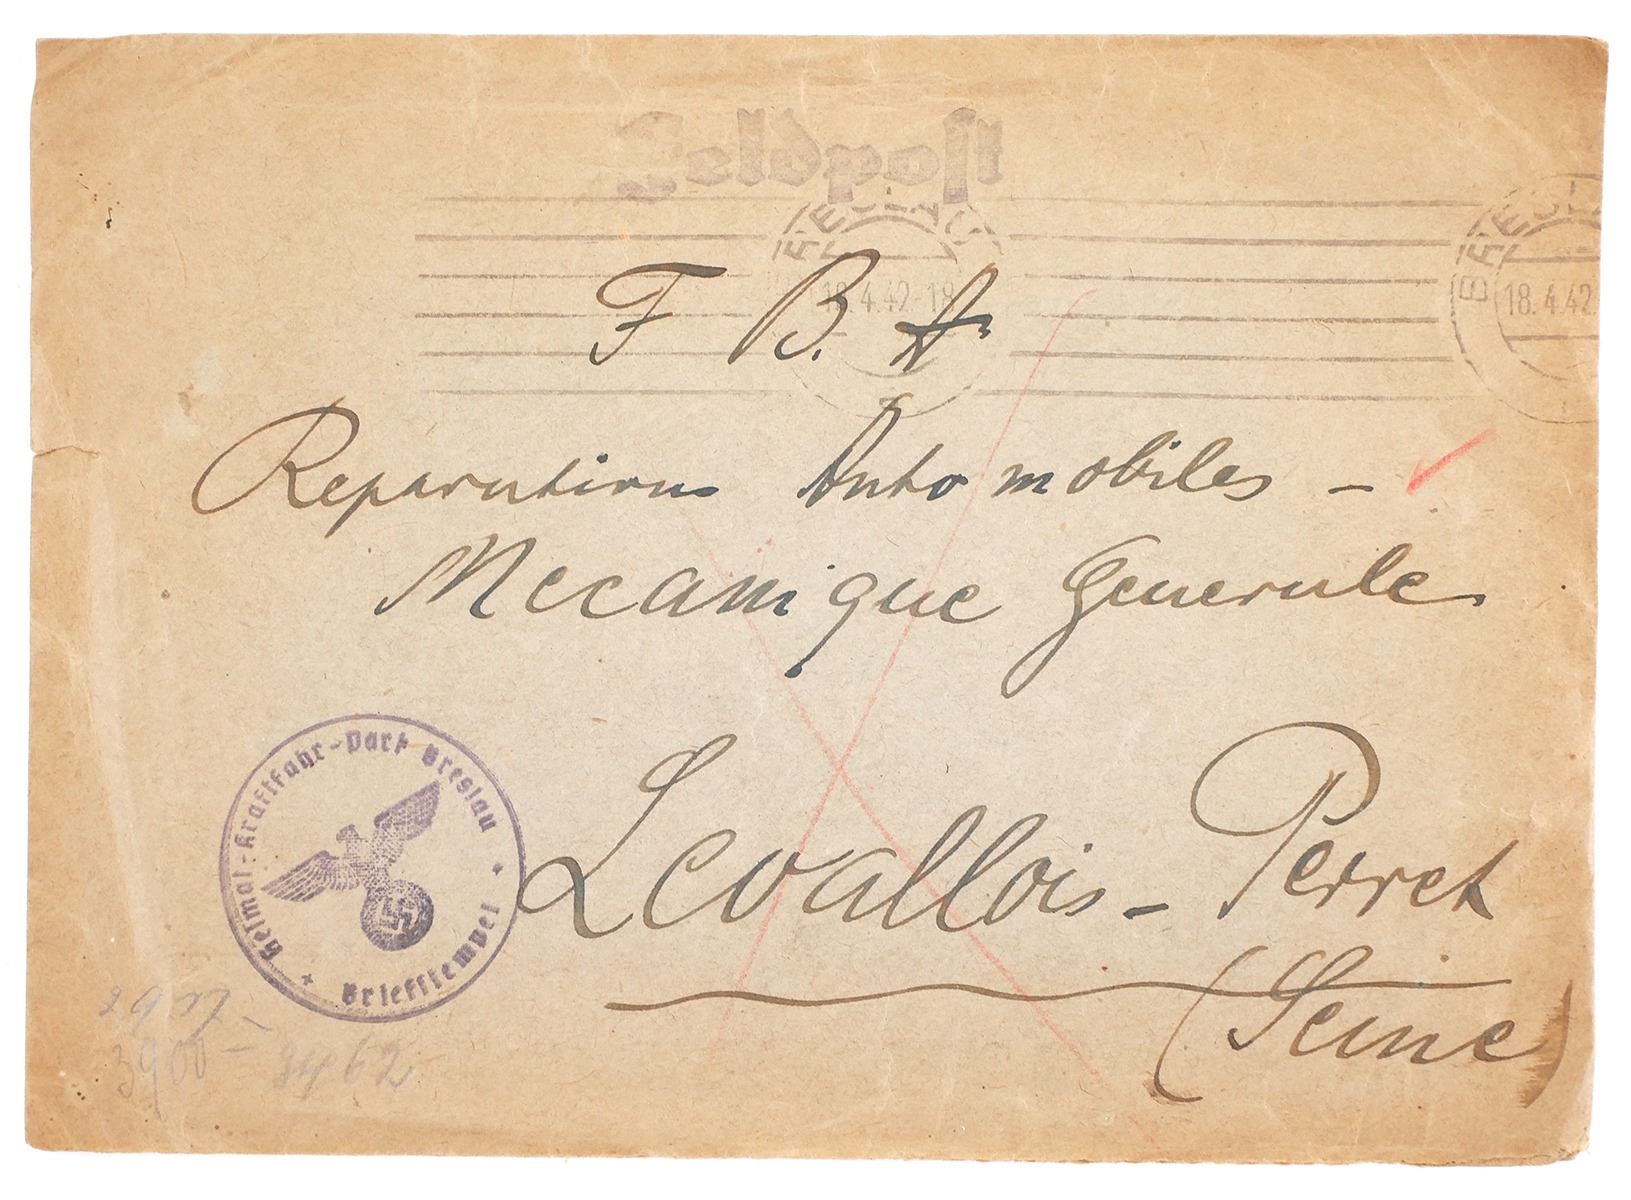 Feldpost
BRESLAU
18.4.42-18
BRESLAU
18.4.42
F B. A
Reparations Automobiles -
Mecanique Generale
Levallois - Perret
(Seine)
Heimat-Kraftfahr-Park Breslau
* Briefstempel *
3900 - 3462